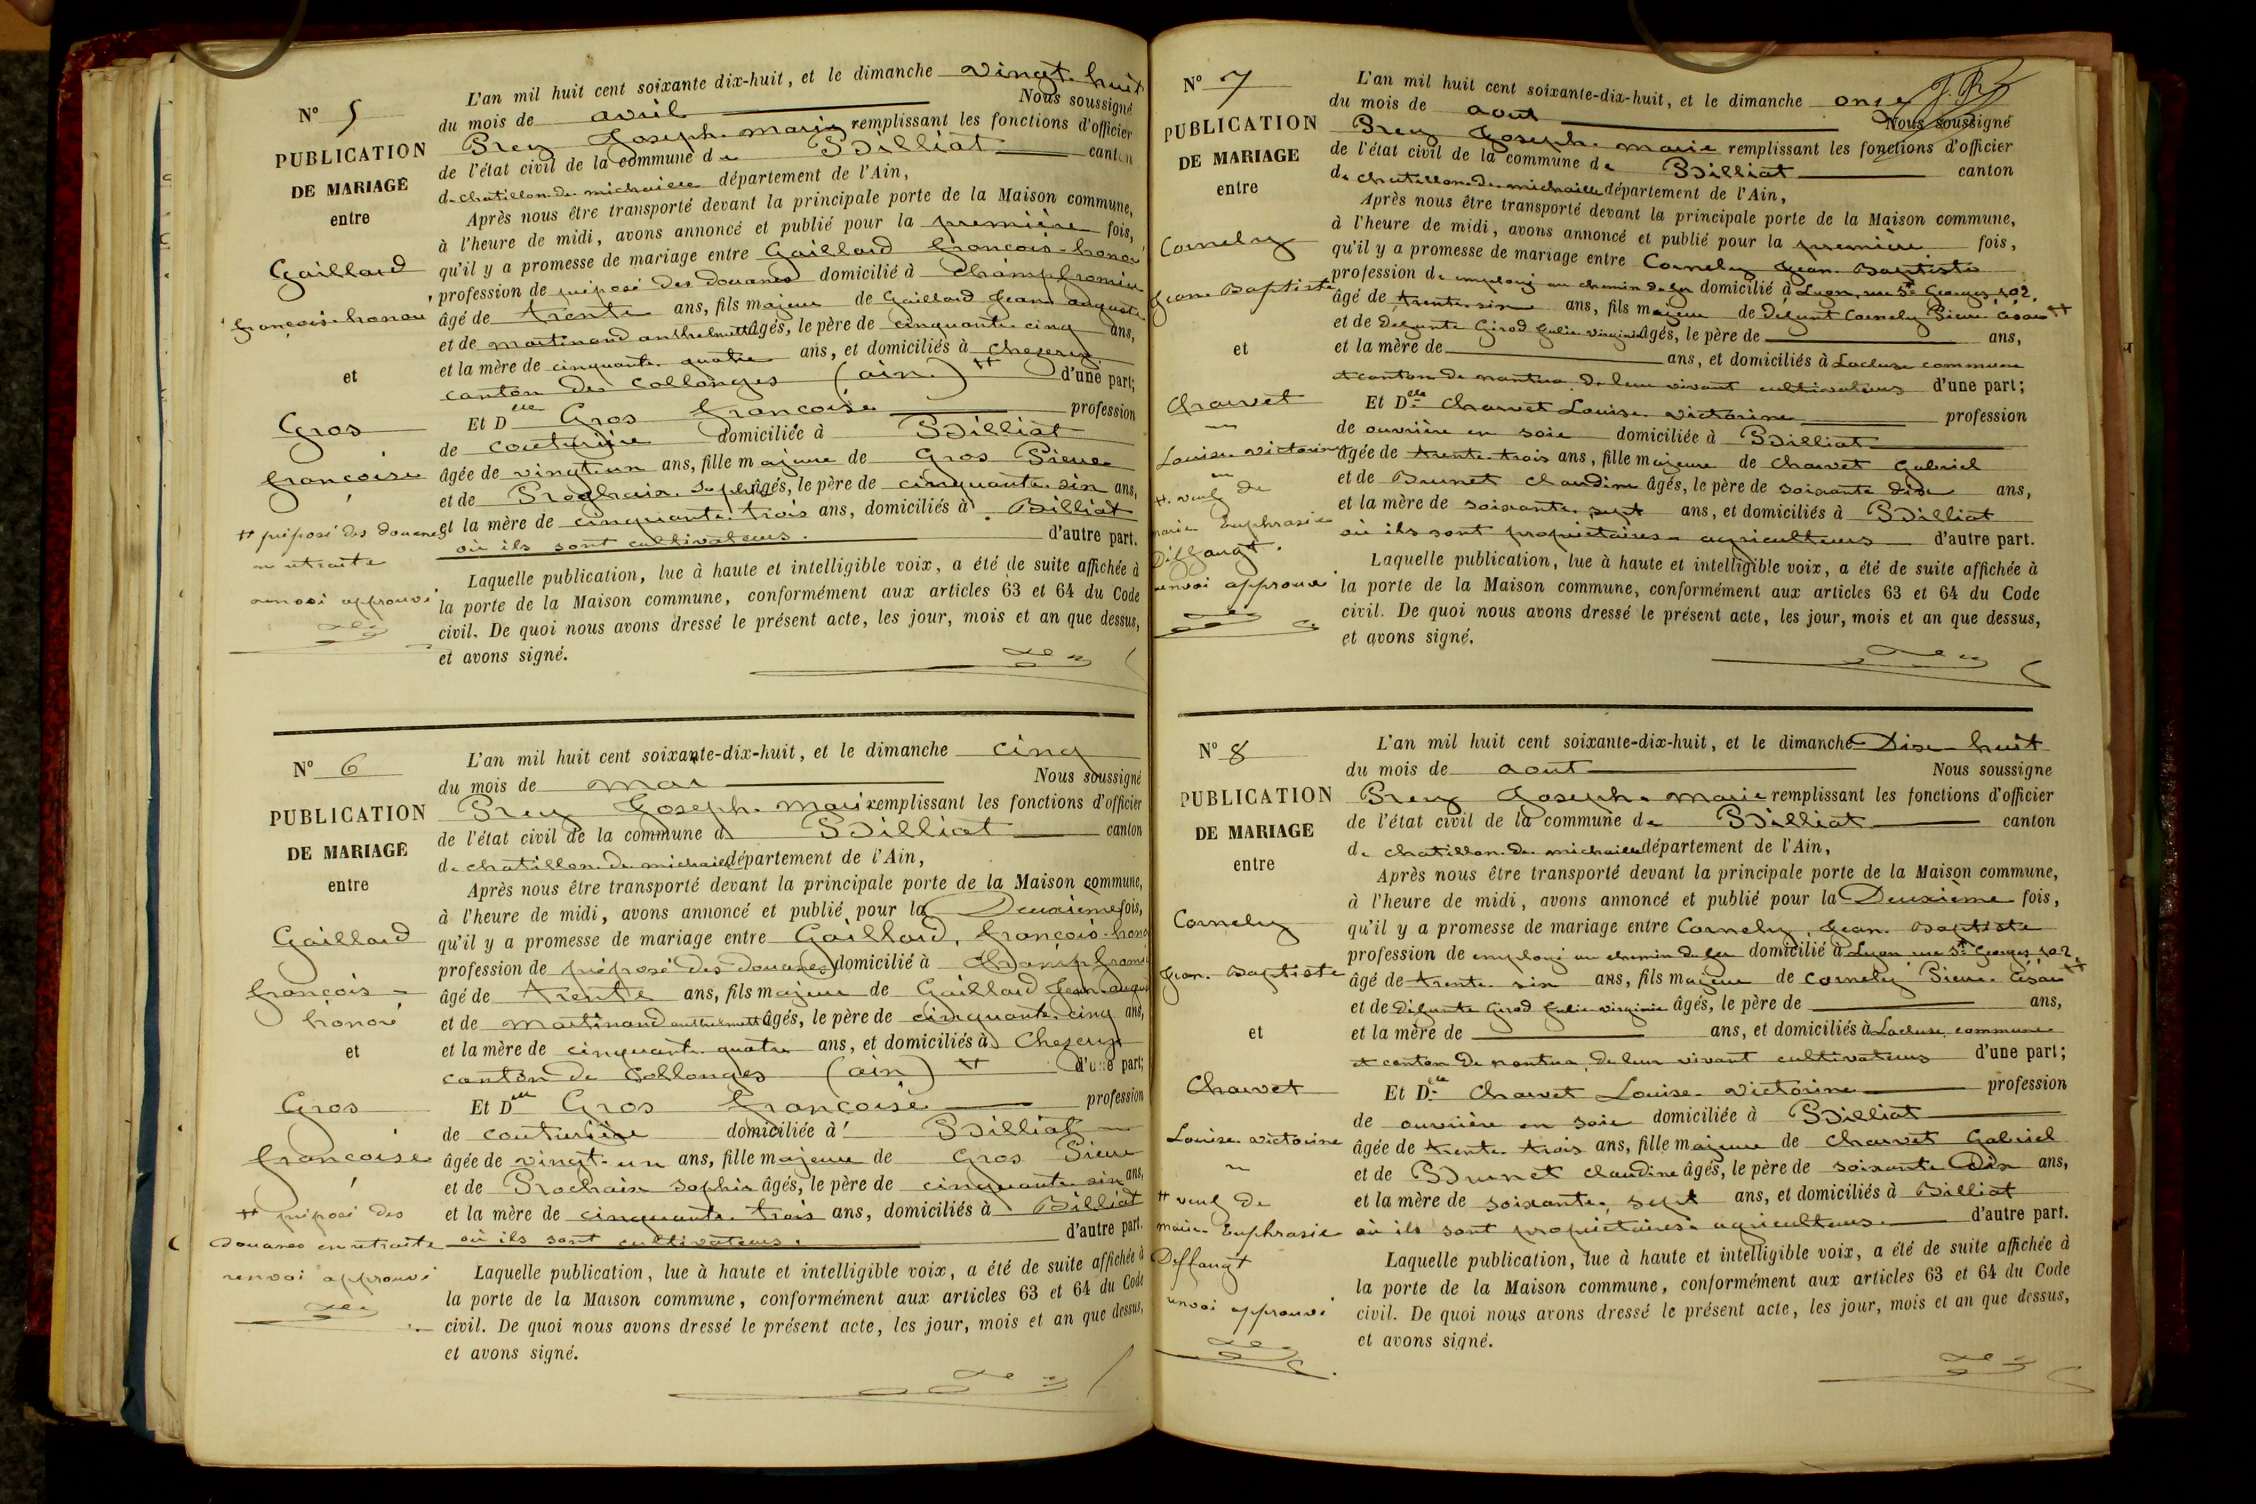 N° 5
PUBLICATION
DE MARIAGE
entre
Gaillard
françois honoré
et
Gros
françoise
++ préposé des douanes
en retraite
renvoi approuvé
L'an mil huit cent soixante dix-huit, et le dimanche vingt-huit
du mois de avril Nous soussigné
Prey Joseph-marie remplissant les fonctions d'officier
de l'état civil de la commune de Billiat canton
de chatillon-de-michaille département de l'Ain,
Après nous être transporté devant la principale porte de la Maison commune,
à l'heure de midi, avons annoncé et publié pour la première fois,
qu'il y a promesse de mariage entre Gaillard françois-honoré
profession de préposé des douanes domicilié à champfromier
âgé de trente ans, fils majeur de Gaillard Jean auguste
et de martinand anthelmette âgés, le père de cinquante-cinq ans,
et la mère de cinquante-quatre ans, et domiciliés à chezery
canton de Collonges (ain) ++ d'une part;
Et Dlle Gros françoise profession
de couturière domiciliée à Billiat
âgée de vingt-un ans, fille majeure de Gros Pierre
et de Prochain Sophie âgés, le père de cinquante-six ans,
et la mère de cinquante-trois ans, domiciliés à Billiat
où ils sont cultivateurs. d'autre part.
Laquelle publication, lue à haute et intelligible voix, a été de suite affichée à
la porte de la Maison commune, conformément aux articles 63 et 64 du Code
civil. De quoi nous avons dressé le présent acte, les jour, mois et an que dessus,
et avons signé.
N° 6
PUBLICATION
DE MARIAGE
entre
Gaillard
françois-
honoré
et
Gros
françoise
++ préposé des
douanes en retraite
renvoi approuvé
L'an mil huit cent soixante-dix-huit, et le dimanche cinq
du mois de mai Nous soussigné
Prey Joseph-marie remplissant les fonctions d'officier
de l'état civil de la commune de Billiat canton
de chatillon-de-michaille département de l'Ain,
Après nous être transporté devant la principale porte de la Maison commune,
à l'heure de midi, avons annoncé et publié pour la Deuxième fois,
qu'il y a promesse de mariage entre Gaillard, françois-honoré
profession de préposé des douanes domicilié à champfromier
âgé de trente ans, fils majeur de Gaillard Jean-auguste
et de martinand anthelmette âgés, le père de cinquante-cinq ans,
et la mère de cinquante-quatre ans, et domiciliés à Chezery
canton de Collonges (ain) ++ d'une part;
Et Dlle Gros françoise profession
de couturière domiciliée à Billiat
âgée de vingt-un ans, fille majeure de Gros Pierre
et de Prochain Sophie âgés, le père de cinquante-six ans,
et la mère de cinquante-trois ans, domiciliés à Billiat
où ils sont cultivateurs. d'autre part.
Laquelle publication, lue à haute et intelligible voix, a été de suite affichée à
la porte de la Maison commune, conformément aux articles 63 et 64 du Code
civil. De quoi nous avons dressé le présent acte, les jour, mois et an que dessus,
et avons signé.
N° 7
PUBLICATION
DE MARIAGE
entre
Cornely
Jean-Baptiste
et
Charvet
Louise-victorine
++ veuf de
marie Euphrasie
Diffangt.
renvoi approuvé
L'an mil huit cent soixante-dix-huit, et le dimanche onze
du mois de aout Nous soussigné
Prey Joseph-marie remplissant les fonctions d'officier
de l'état civil de la commune de Billiat canton
de chatillon-de-michaille département de l'Ain,
Après nous être transporté devant la principale porte de la Maison commune,
à l'heure de midi, avons annoncé et publié pour la première fois,
qu'il y a promesse de mariage entre Cornely Jean-Baptiste
profession de employé au chemin de fer domicilié à Lyon, rue St Georges 102.
âgé de trente-six ans, fils majeur de défunt Cornely Pierre César ++
et de défunte Girod Julie virginie âgés, le père de ans,
et la mère de ans, et domiciliés à Lacluse commune
et canton de nantua de leur vivant cultivateurs d'une part;
Et Dlle Charvet Louise-victorine profession
de ouvrière en soie domiciliée à Billiat
âgée de trente-trois ans, fille majeure de Charvet Gabriel
et de Brunet claudine âgés, le père de soixante-dix ans,
et la mère de soixante-sept ans, et domiciliés à Billiat
où ils sont propriétaires-agriculteurs d'autre part.
Laquelle publication, lue à haute et intelligible voix, a été de suite affichée à
la porte de la Maison commune, conformément aux articles 63 et 64 du Code
civil. De quoi nous avons dressé le présent acte, les jour, mois et an que dessus,
et avons signé.
N° 8
PUBLICATION
DE MARIAGE
entre
Cornely
Jean-Baptiste
et
Charvet
Louise-victorine
++ veuf de
marie-Euphrasie
Diffangt
renvoi approuvé
L'an mil huit cent soixante-dix-huit, et le dimanche Dix-huit
du mois de aout Nous soussigné
Prey Joseph-marie remplissant les fonctions d'officier
de l'état civil de la commune de Billiat canton
de chatillon-de-michaille département de l'Ain,
Après nous être transporté devant la principale porte de la Maison commune,
à l'heure de midi, avons annoncé et publié pour la Deuxième fois,
qu'il y a promesse de mariage entre Cornely, Jean-Baptiste
profession de employé au chemin de fer domicilié à Lyon rue St Georges 102.
âgé de trente-six ans, fils majeur de Cornely Pierre-César ++
et de défunte Girod Julie-virginie âgés, le père de ans,
et la mère de ans, et domiciliés à Lacluse, commune
et canton de nantua, de leur vivant cultivateurs d'une part;
Et Dlle Charvet Louise-victorine profession
de ouvrière en soie domiciliée à Billiat
âgée de trente-trois ans, fille majeure de Charvet Gabriel
et de Brunet claudine âgés, le père de soixante-dix ans,
et la mère de soixante-sept ans, et domiciliés à Billiat
où ils sont propriétaires-agriculteurs. d'autre part.
Laquelle publication, lue à haute et intelligible voix, a été de suite affichée à
la porte de la Maison commune, conformément aux articles 63 et 64 du Code
civil. De quoi nous avons dressé le présent acte, les jour, mois et an que dessus,
et avons signé.